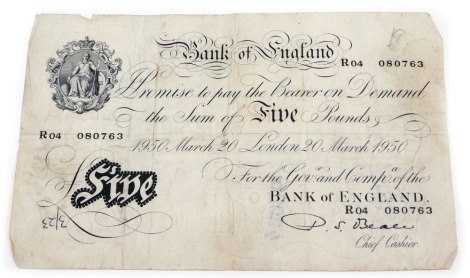 Bank of England
R04 080763
I Promise to pay the Bearer on Demand
the Sum of Five Pounds
R04 080763
1950 March 20 London 20 March 1950
For the Gov.r and Comp.a of the
BANK OF ENGLAND.
R04 080763
Five
P. S. Beale
Chief Cashier.